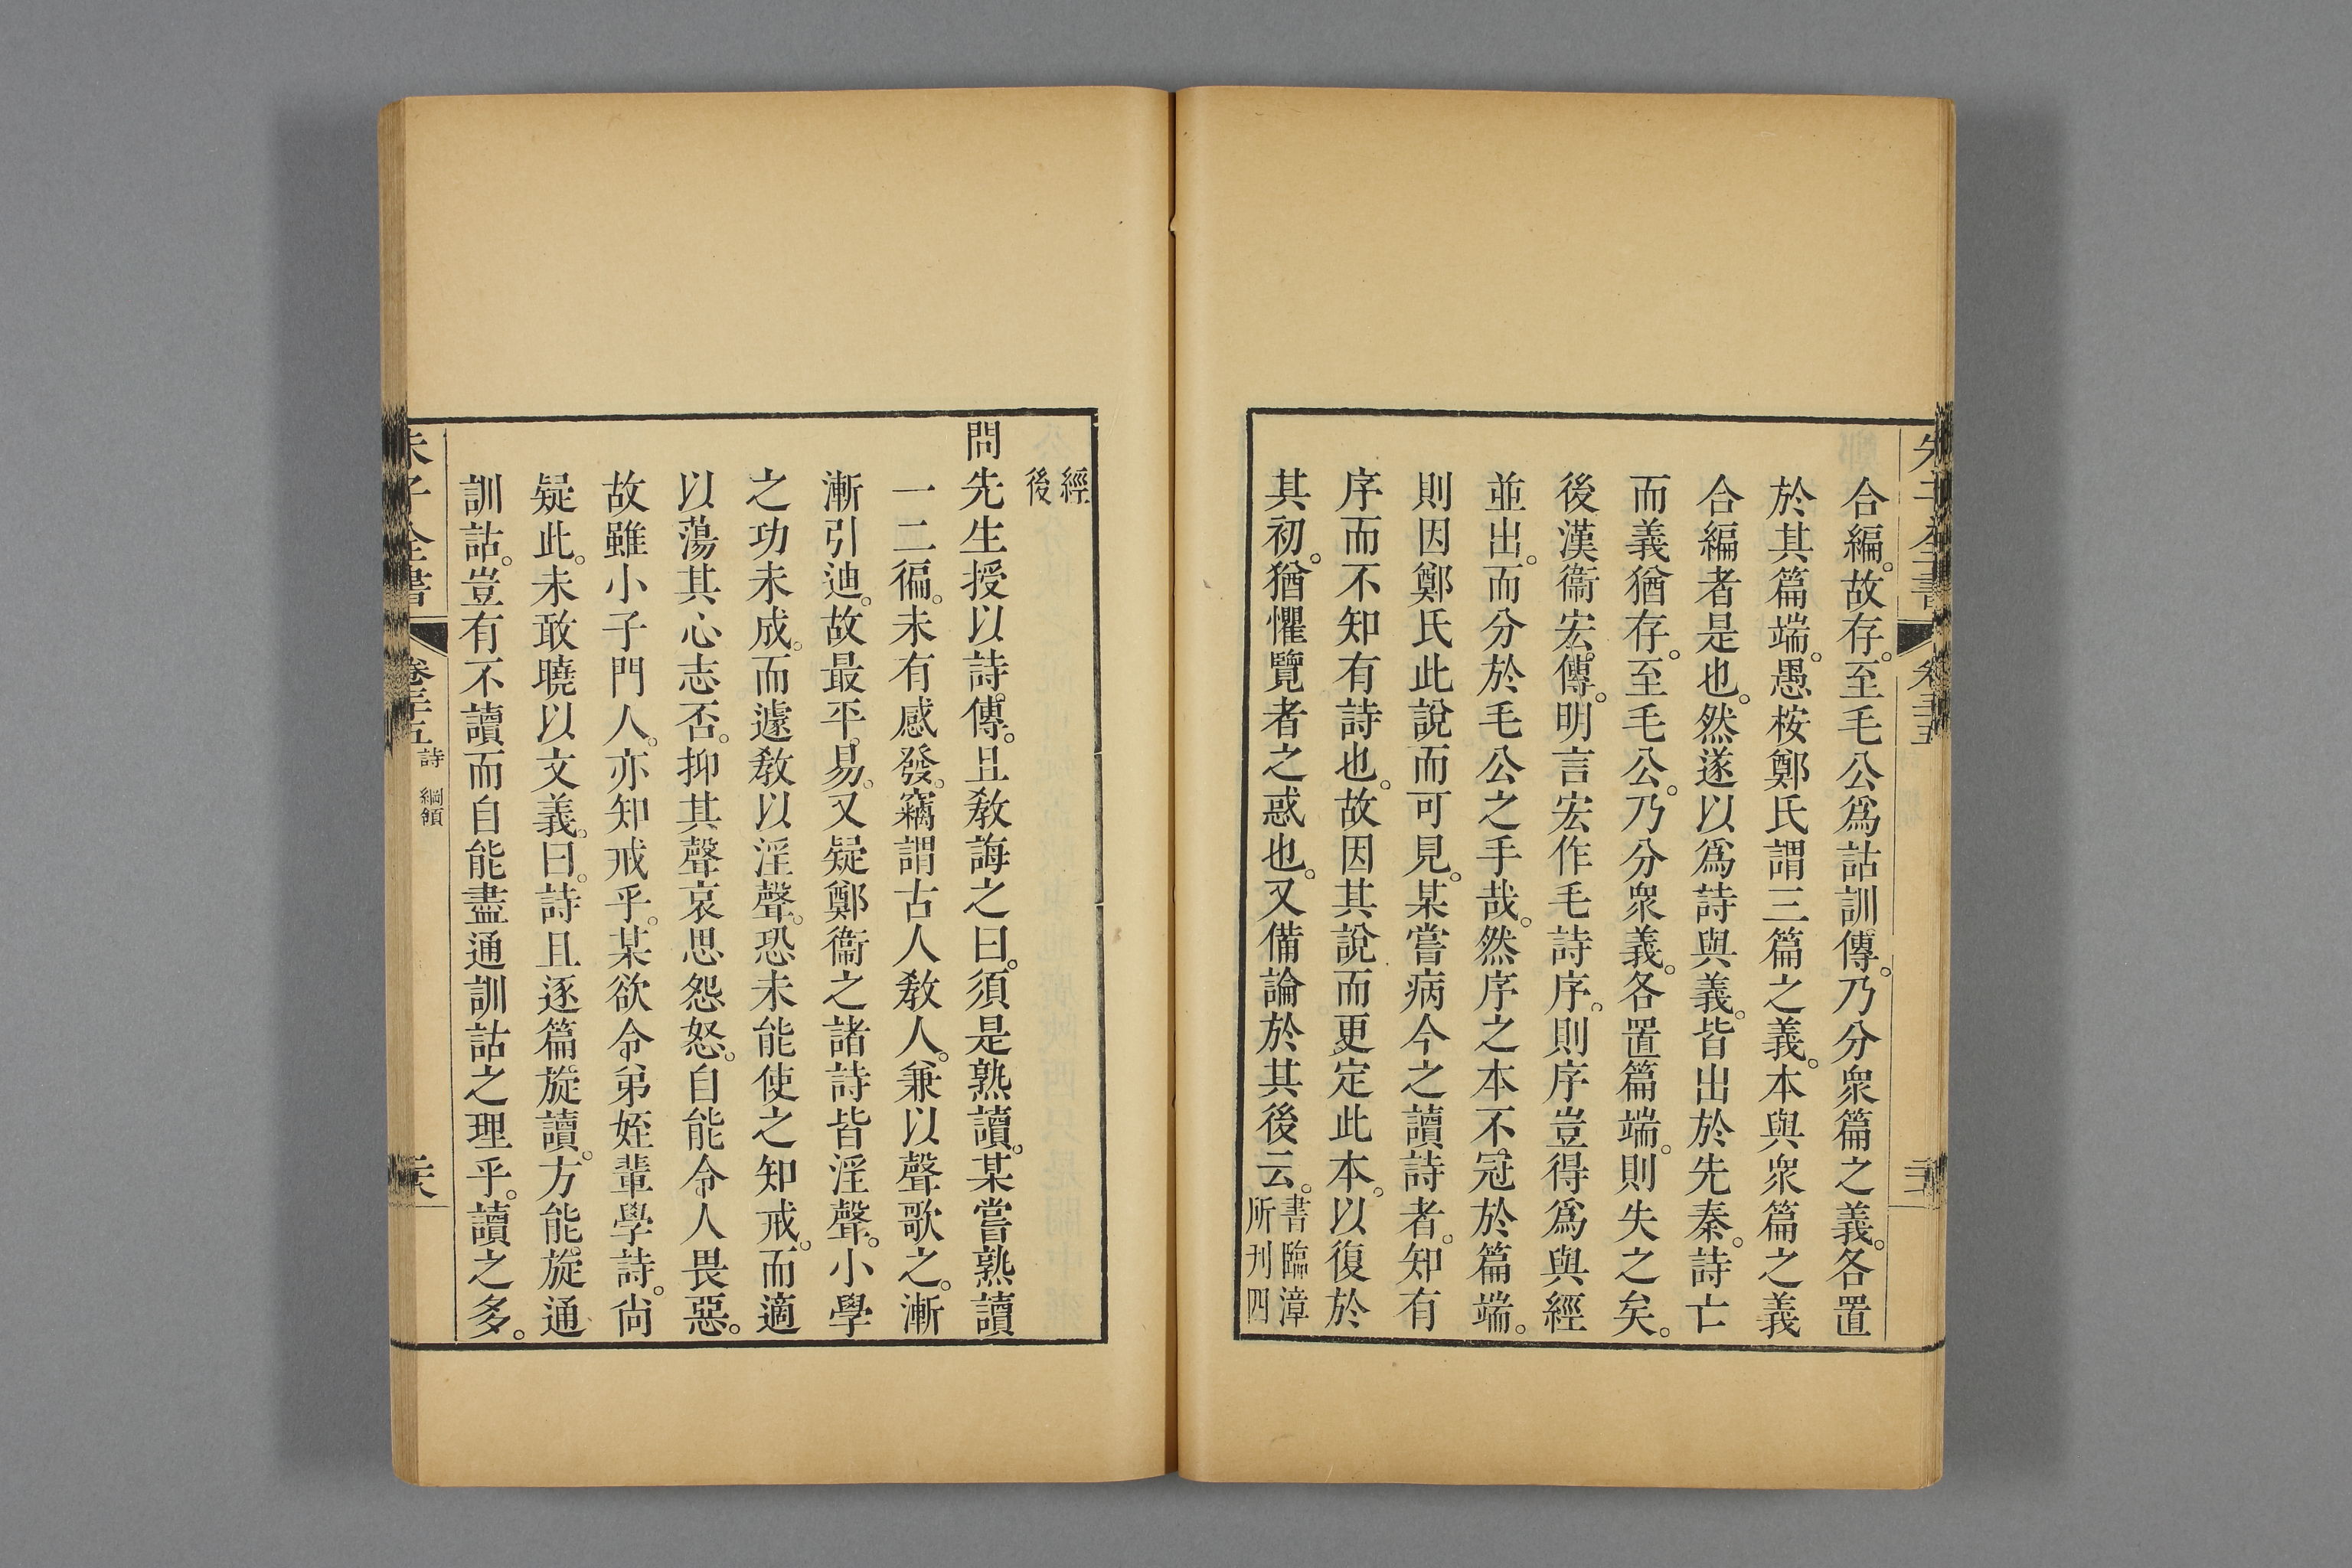 合編。故存。至毛公爲詁訓傳。乃分衆篇之義。各置
於其篇端。愚桉鄭氏謂三篇之義。本與衆篇之義
合編者是也。然遂以爲詩與義。皆出於先秦。詩亡
而義猶存。至毛公。乃分衆義。各置篇端。則失之矣。
後漢衞宏傳。明言宏作毛詩序。則序豈得爲與經
並出。而分於毛公之手哉。然序之本不冠於篇端。
則因鄭氏此說而可見。某嘗病今之讀詩者。知有
序而不知有詩也。故因其說而更定此本。以復於
其初。猶懼覽者之惑也。又備論於其後云。書臨漳所刊四
經後
問先生授以詩傳。且敎誨之曰。須是熟讀。某嘗熟讀
一二徧。未有感發。竊謂古人敎人。兼以聲歌之。漸
漸引迪。故最平易。又疑鄭衞之諸詩皆淫聲。小學
之功未成。而遽敎以淫聲。恐未能使之知戒。而適
以蕩其心志否。抑其聲哀思怨怒。自能令人畏惡。
故雖小子門人。亦知戒乎。某欲令弟姪輩學詩。尙
疑此。未敢曉以文義。曰。詩且逐篇旋讀。方能旋通
訓詁。豈有不讀而自能盡通訓詁之理乎。讀之多。
朱子全書 卷三十五 詩 綱領